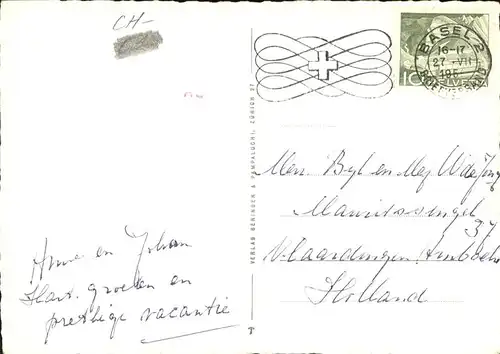 CH-
BASEL 2
16-17
27. VII
195
BRIEFVERSAND
10 HELVETIA
VERLAG BERINGER & PAMPALUCHI, ZÜRICH 37
Mevr. Byl en Mej W de Jong
Mauritssingel
37
Vlaardingen, Ambacht
Holland
Anne en Johan
Hart. groeten en
prettige vacantie